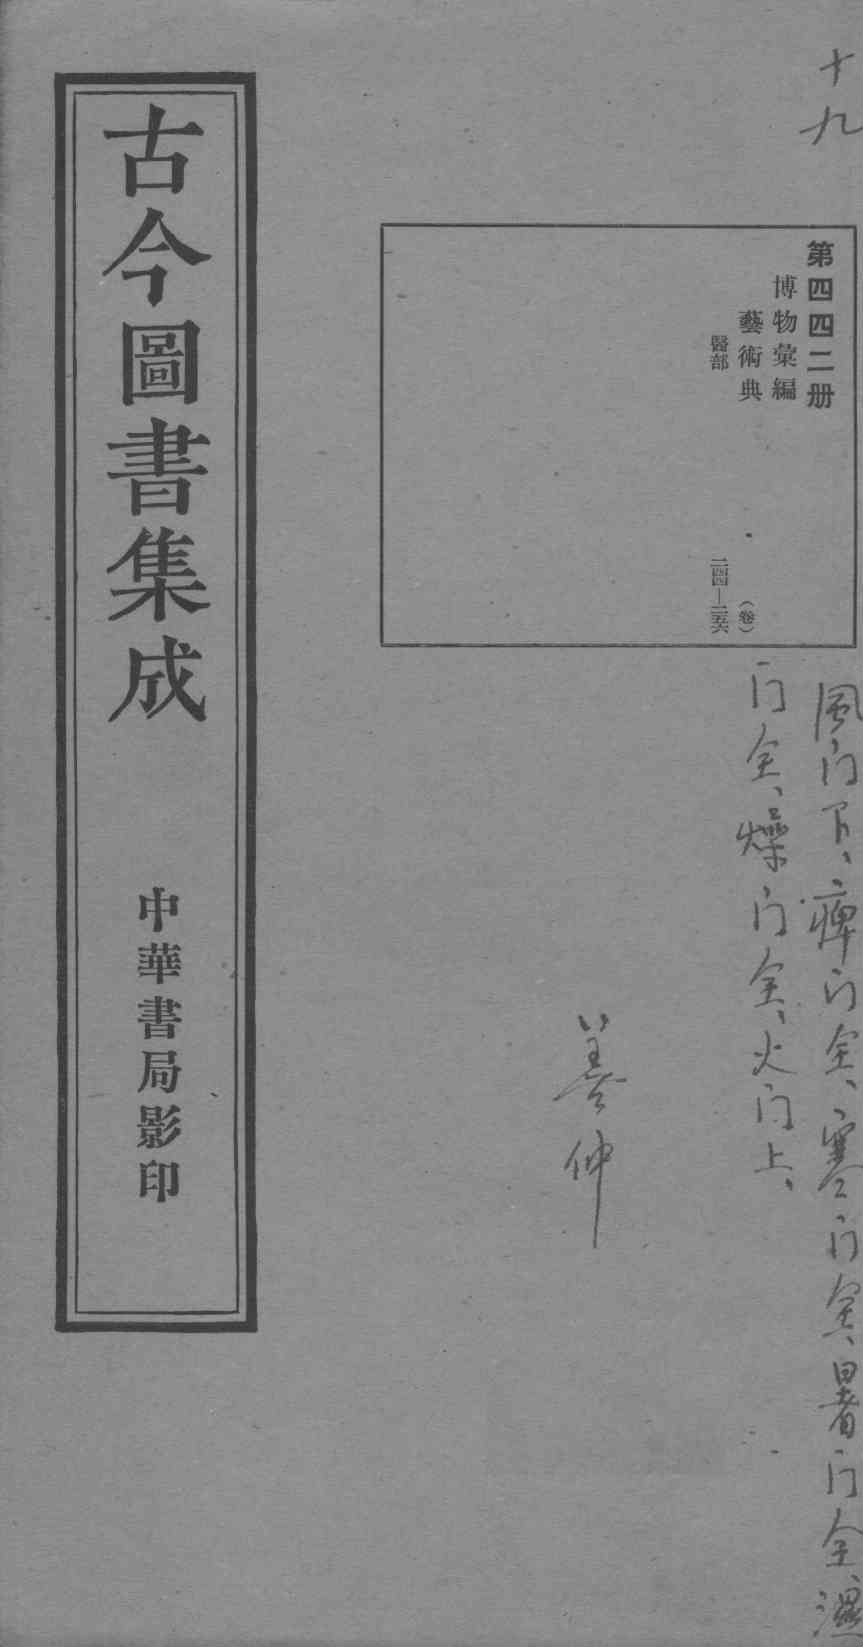 十九
第四四二册
博物彙編
藝術典
（卷）
醫部
二四四—二五六
風门下、痺门全、寒门全、暑门全、濕
门全、燥门全、火门上、
仲
古今圖書集成
中華書局影印